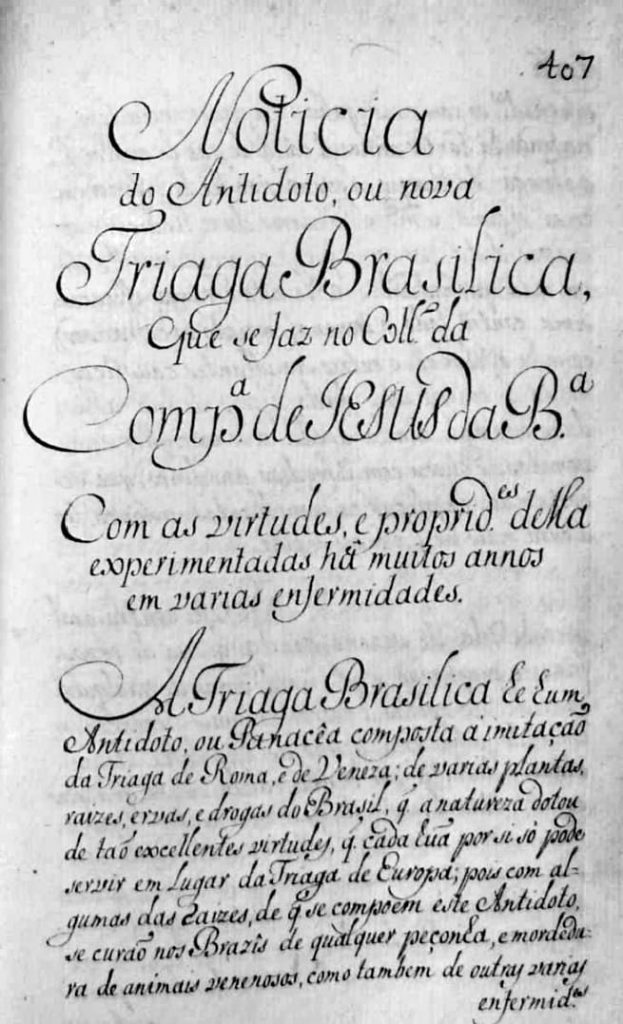 407
Noticia
do Antidoto, ou nova
Triaga Brasilica,
Que se faz no Coll.º da
Comp.ª de JESUS da B.ª
Com as virtudes, e proprid.es della
experimentadas há muitos annos
em varias enfermidades.
A Triaga Brasilica he hum
Antidoto, ou Panacêa composta á imitação
da Triaga de Roma, e de Veneza; de varias plantas,
raizes, ervas, e drogas do Brasil, q̃ a natureza dotou
de taõ excellentes virtudes, q̃ cada huã por si só pode
servir em lugar da Triaga de Europa; pois com al-
gumas das raizes, de q̃ se compoem este Antidoto,
se curaõ nos Brazîs de qualquer peçonha, e mordedu-
ra de animais venenosos, como tambem de outras varias
enfermid.es